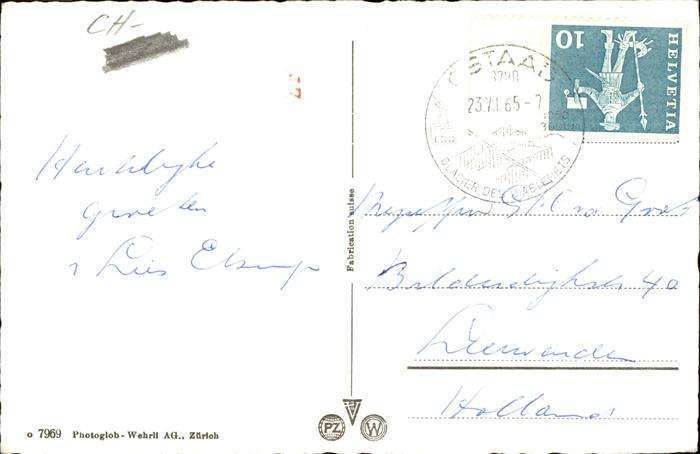 CH-
HELVETIA
10
GSTAAD
3780
23.VI.65-7
GLACIER DES DIABLERETS
Hartelijke
groeten
Lies
Fabrication suisse
v.d.
40
Leeuwarden
Holland
o 7969 Photoglob-Wehrli AG., Zürich
PZ
W